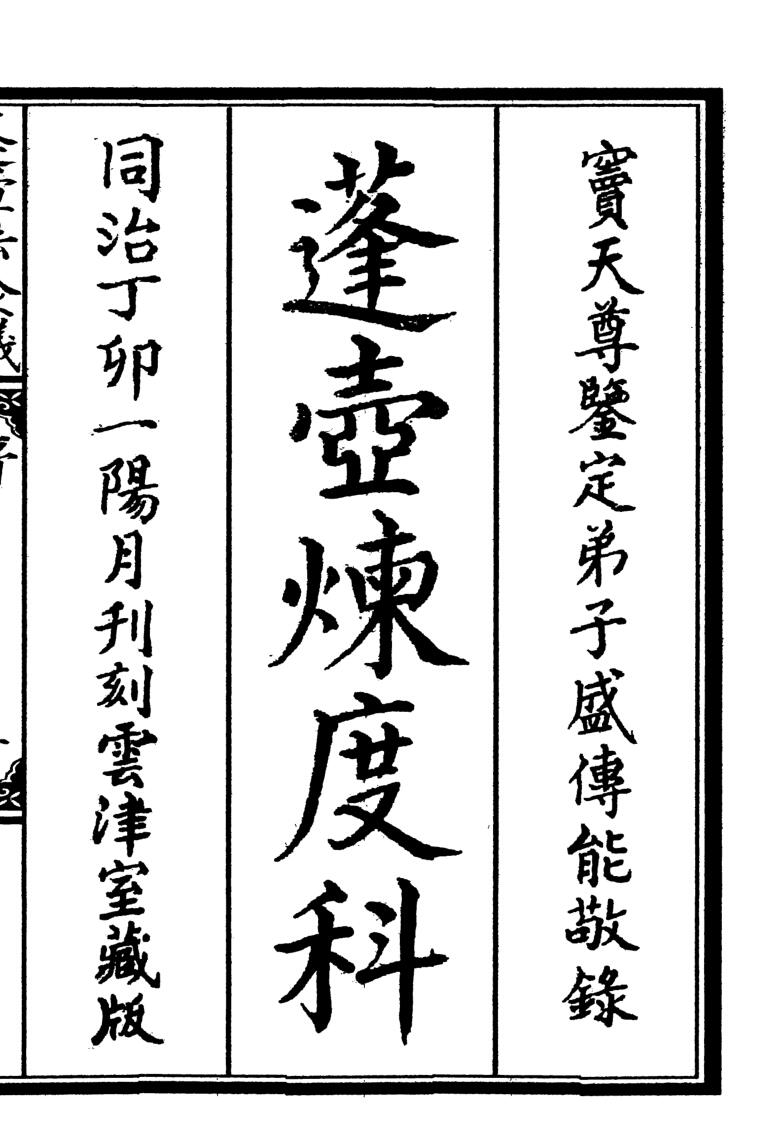 竇天尊鑒定弟子盛傳能敬錄
蓬壺煉度科
同治丁卯一陽月刊刻雲津室藏版